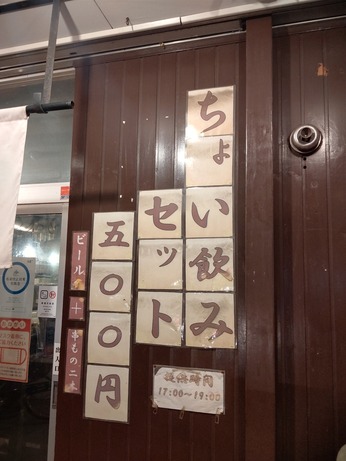 ちょい飲み
セット
五〇〇円
ビール+串もの二本
提供時間
17:00~19:00
出入口